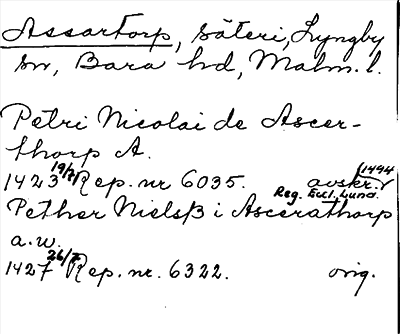 Assartorp, säteri, Lyngby
sn, Bara hd, Malm. l.
Petri Nicolai de Ascer-
thorp A.
1423 19/7 Rep. nr 6035. avskr. (1494
Reg. Eccl. Lund.
Pether Nielsß i Ascerathorp
a.w.
1427 26/7 Rep. nr. 6322. orig.